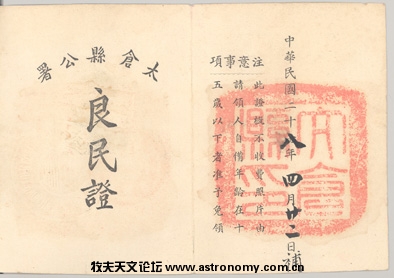 中華民國二十八年四月廿二日補
注意事項
此證概不收費照片由
請領人自備年齡在十
五歲以下者准予免領
太倉縣公署
良民證
太倉縣印
牧夫天文论坛 www.astronomy.com.cn